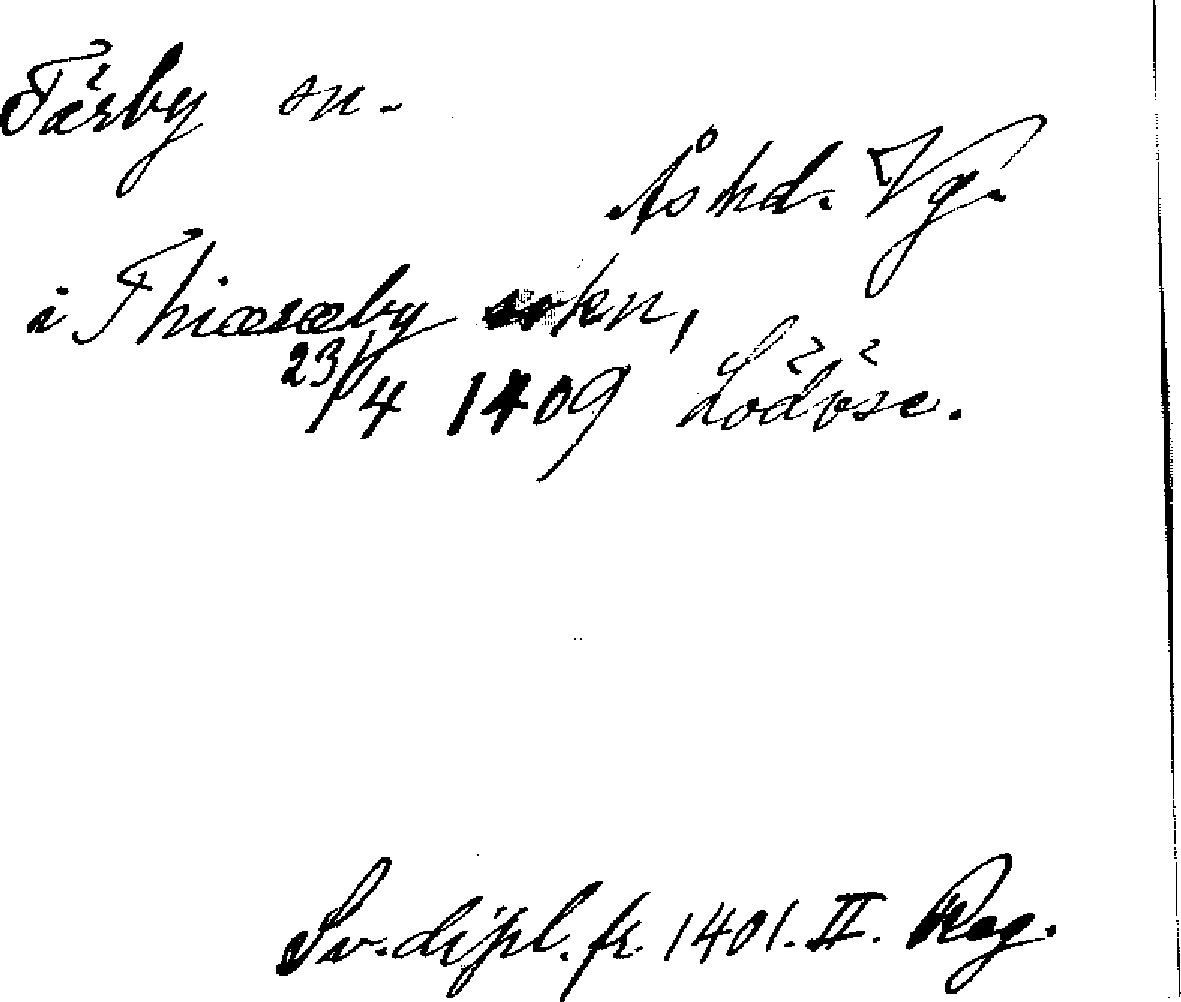 Tärby sn.
Ås hd. Vg.
i Thiæræby sokn,
23/4 1409 Lödöse.
Sv. dipl. fr. 1401. II. Reg.